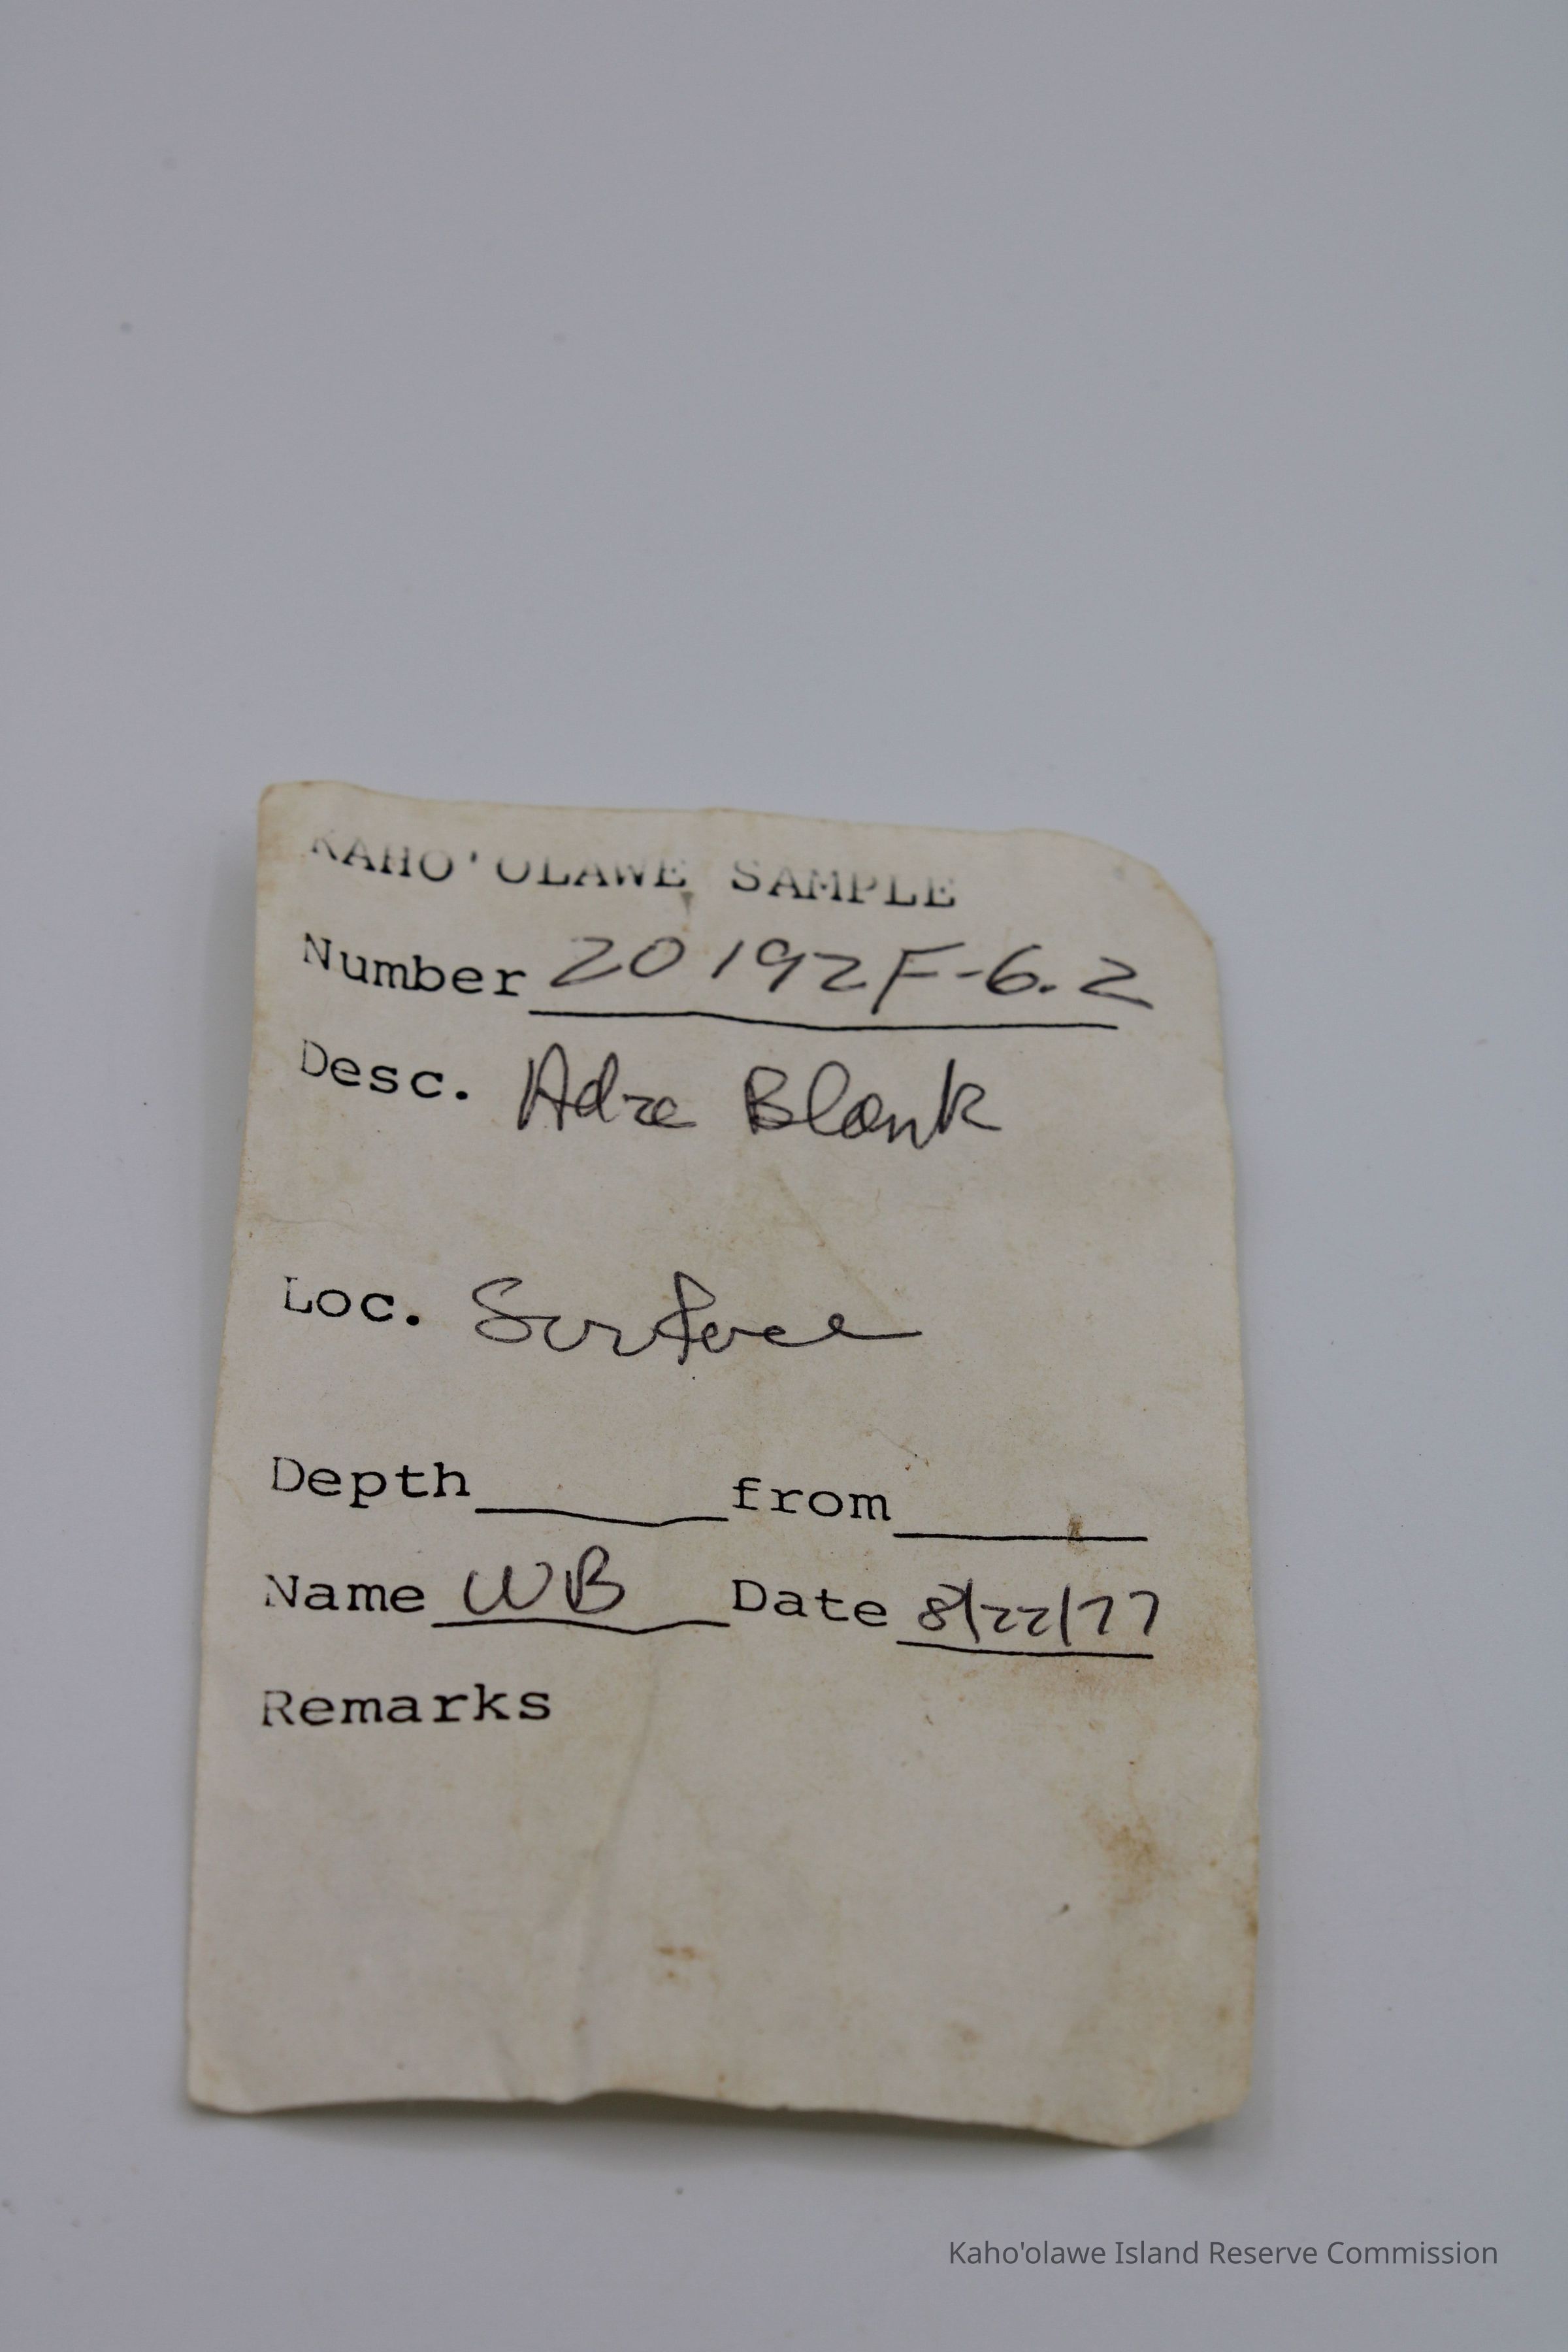 KAHO'OLAWE SAMPLE
Number 20192F-6.2
Desc. Adze Blank
Loc. Surface
Depth from
Name WB Date 8/22/77
Remarks
Kaho'olawe Island Reserve Commission